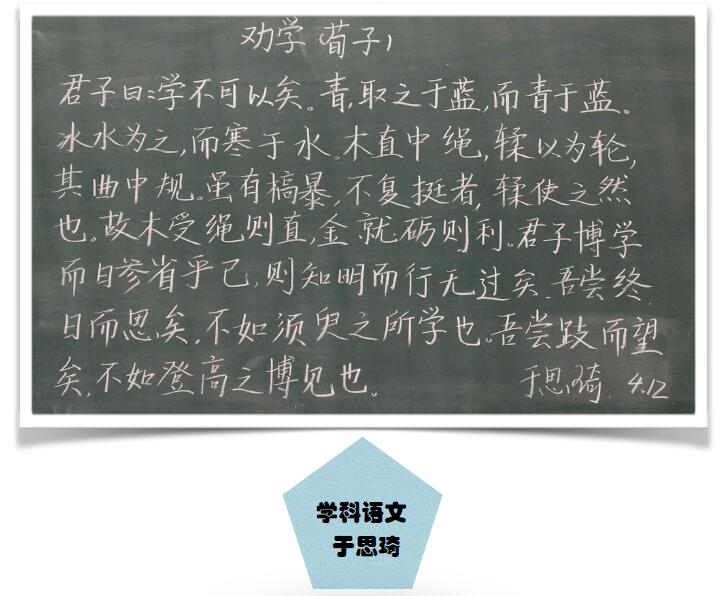 劝学(荀子)
君子曰:学不可以矣。青,取之于蓝,而青于蓝。
冰水为之,而寒于水。木直中绳,輮以为轮,
其曲中规。虽有槁暴,不复挺者,輮使之然
也。故木受绳则直,金就砺则利。君子博学
而日参省乎己,则知明而行无过矣.吾尝终
日而思矣,不如须臾之所学也。吾尝跂而望
矣,不如登高之博见也。
于思琦. 4.12
学科语文
于思琦